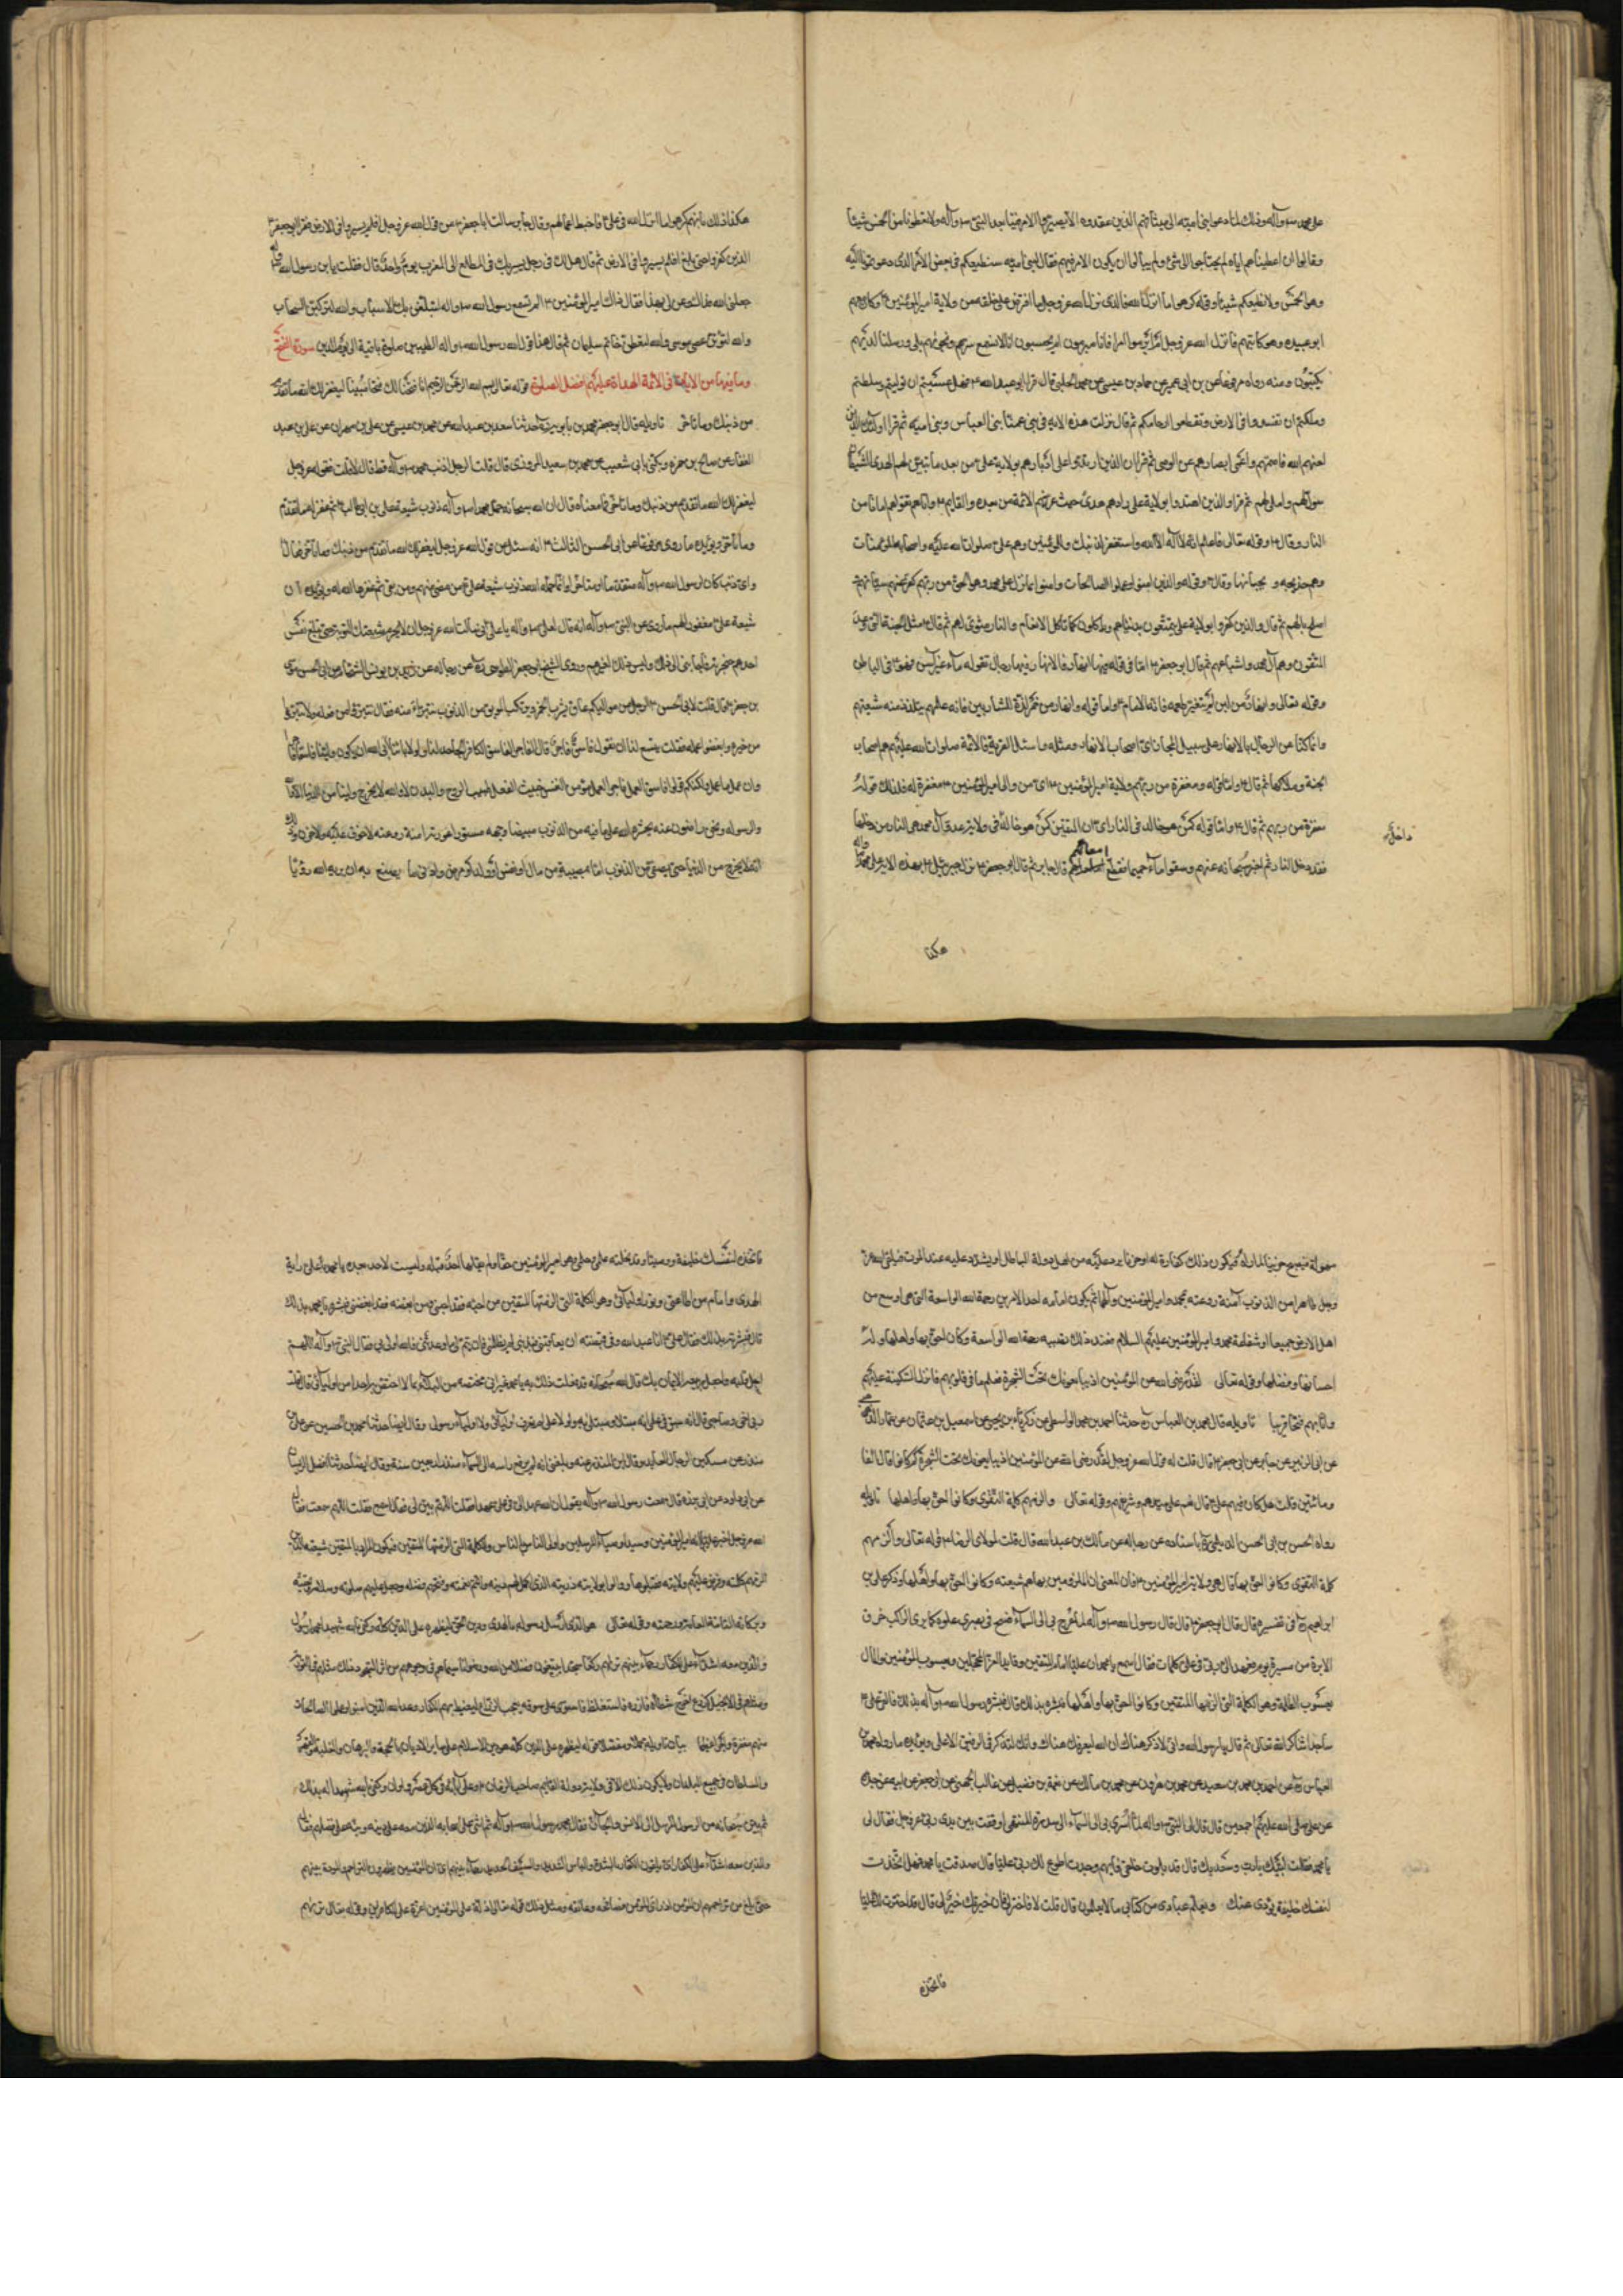 على محمد ص وآله وذلك لما دعوا بني امية الى ميثاقهم الذين عقدوه الا يصيروا الامر فينا بعد النبي ص وآله ولا يعطونا من الخمس شيئا
وقالوا ان اعطيناهم اياه لم يحتاجوا الى شئ ولم يبالوا ان يكون الامر فيهم فقال لبني امية سنطيعكم في بعض الأمر الذي دعوتمونا اليه
وهو الخمس ولا نعطيهم شيئا وقوله كرهوا ما انزل الله فالذي نزل الله عز وجل ما افترض على خلقه من ولاية امير المؤمنين ع وكان معهم
ابو عبيدة وهو كاتبهم فانزل الله عز وجل ام ابرموا امرا فانا مبرمون ام يحسبون انا لا نسمع سرهم ونجويهم بلى ورسلنا لديهم
يكتبون ومنه رواه مرفوعا عن بن ابي عمير عن حماد بن عيسى عن محمد الحلبي قال قرا ابو عبد الله ع فهل عسيتم ان توليتم وسلطتم
وملكتم ان تفسدوا في الارض وتقطعوا ارحامكم ثم قال نزلت هذه الاية في بني عمنا بني العباس وبني امية ثم قرا اولئك الذين
لعنهم الله فاصمهم واعمى ابصارهم عن الوحي ثم قرا ان الذين ارتدوا على ادبارهم بولاية علي من بعد ما تبين لهم الهدى الشيطان
سول لهم واملى لهم ثم قرا والذين اهتدوا بولاية علي زادهم هدى حيث عرفهم الائمة من بعده والقايم ع واتاهم تقواهم امانا من
النار وقال ع وقوله تعالى فاعلم انه لا اله الا الله واستغفر لذنبك وللمؤمنين وهم علي صلوات الله عليه واصحابه والمؤمنات
وهم خديجة و صحباتها وقال ع وقوله والذين امنوا وعملوا الصالحات وامنوا بما نزل على محمد وهو الحق من ربهم كفر عنهم سيئاتهم
اصلح بالهم ثم قال والذين كفروا بولاية علي يتمتعون بدنياهم وياكلون كما تاكل الانعام والنار مثوى لهم ثم قال ع مثل الجنة التي وعد
المتقون وهم آل محمد واشياعهم ثم قال ابو جعفر ع اما قوله فيها انهار فالانهار رجال وقوله ماء غير آسن
وقوله تعالى وانهار من لبن لم يتغير طعمه فانه الامام ع واما قوله وانهار من خمر لذة للشاربين فانه علمهم يتلذذ منه شيعتهم
وانما كنا عن الرجال بالانهار على سبيل المجاز اي اصحاب الانهار ومثله واسئل القرية فالائمة صلوات الله عليهم هم اصحاب
الجنة وملاكها ثم قال ع واما قوله ومغفرة من ربهم ولاية امير المؤمنين ع اي من والى امير المؤمنين ع مغفرة له فذلك قوله
مغفرة من ربهم ثم قال ع واما قوله كمن هو خالد في النار اي ان المتقين كمن هو خالد في ولاية عدو آل محمد هي النار من دخلها
داخل
فقد دخل النار ثم اخبر سبحانه عنهم وسقوا ماء حميما فقطع امعائهم قال جابر ثم قال ابو جعفر ع نزل جبرئيل ع بهذه الاية على محمد وآله
هكذا
هكذا ذلك بانهم كرهوا ما انزل الله في علي ع فاحبط اعمالهم وقال جابر سالت ابا جعفر ع عن قول الله عز وجل افلم يسيروا في الارض فقرا ابو جعفر ع
الذين كفروا حتى بلغ افلم يسيروا في الارض ثم قال هل لك في رجل يسير بك في المطلع الى المغرب يوم واحد قال فقلت يا بن رسول الله
جعلني الله فداك ومن لي بهذا فقال ذاك امير المؤمنين ع الم تسمع رسول الله ص وآله لتبلغن بك الاسباب والله لتركبن السحاب
والله لتؤتين عصى موسى والله لتعطين خاتم سليمان ثم قال هذا قول رسول الله ص وآله الطيبين صلوة باقية الى يوم الدين سورة الفتح
وما فيها من الايات في الائمة الهداة عليهم افضل الصلوة قوله تعالى بسم الله الرحمن الرحيم انا فتحنا لك فتحا مبينا ليغفر لك الله ما تقدم
من ذنبك وما تاخر تاويله قال ابو جعفر محمد بن بابويه حدثنا سعد بن عبد الله عن محمد بن عيسى عن علي بن مهران عن علي بن عبد
الغفار عن صالح بن حمزة ويكنى بابي شعيب عن محمد بن سعيد المروزي قال قلت لرجل اذنب محمد ص وآله قط قال لا قلت فقوله عز وجل
ليغفر لك الله ما تقدم من ذنبك وما تاخر فما معناه قال ان الله سبحانه حمل محمدا ص وآله ذنوب شيعة علي بن ابي طالب ع ثم غفر له ما تقدم
وما تاخر ويؤيده ما روي مرفوعا عن ابي الحسن الثالث ع انه سئل عن قول الله عز وجل ليغفر لك الله ما تقدم من ذنبك وما تاخر فقال
واي ذنب كان لرسول الله ص وآله متقدما او متاخرا وانما حمله الله ذنوب شيعة علي ع من مضى منهم ومن بقى ثم غفرها الله له ويؤيده ان
شيعة علي ع مغفور لهم ما روي عن النبي ص وآله انه قال لعلي ع يا علي اني سالت الله عز وجل ان لا يحرم شيعتك التوبة حتى تبلغ نفس
احدهم حنجرته فاجابني الى ذلك وليس ذلك لغيرهم وروى الشيخ ابو جعفر الطوسي ره عن رجاله عن زيد بن يونس الشحام عن ابي الحسن موسى
بن جعفر ع قال قلت لابي الحسن ع الرجل من مواليكم عاق يشرب الخمر ويرتكب الموبق من الذنب نتبرء منه فقال تبرؤا من فعله ولا تتبرؤا
من خيره وابغضوا عمله فقلت يسع لنا ان نقول فاسق فاجر فقال لا الفاجر الفاسق الكافر الجاحد لنا ولاوليائنا ابى الله ان يكون ولينا فاسقا فاجرا
وان عمل ما عمل ولكنكم قولوا فاسق العمل فاجر العمل مؤمن النفس خبيث الفعل طيب الروح والبدن لا والله لا يخرج ولينا من الدنيا الا والله
ورسوله ونحن راضون عنه يحشره الله على ما فيه من الذنوب مبيضا وجهه مستورة عورته امنة روعته لا خوف عليه ولا حزن وذلك
انه لا يخرج من الدنيا حتى يصفى من الذنوب اما بمصيبة من مال او نفس او ولد او مرض وادنى ما يصنع به ان يريه الله رؤيا
مهولة فيصبح حزينا لما رآه فيكون ذلك كفارة له او خوفا يرد عليه من اهل دولة الباطل او يشدد عليه عند الموت فيلقى الله عز
وجل طاهرا من الذنوب آمنة روعته بمحمد وامير المؤمنين وآلهما ثم يكون امامه احد الامرين رحمة الله الواسعة التي هي اوسع من
اهل الارض جميعا او شفاعة محمد وامير المؤمنين عليهم السلام فعند ذلك تصيبه رحمة الله الواسعة وكان احق بها واهلها وله
احسانها وفضلها وقوله تعالى لقد رضي الله عن المؤمنين اذ يبايعونك تحت الشجرة فعلم ما في قلوبهم فانزل السكينة عليهم
واثابهم فتحا قريبا تاويله قال محمد بن العباس ره حدثنا احمد بن محمد الواسطي عن زكرياء بن يحيى عن اسمعيل بن عثمان عن عمار الدهني
عن ابي الزبير عن جابر عن ابي جعفر ع قال قلت له قول الله عز وجل لقد رضي الله عن المؤمنين اذ يبايعونك تحت الشجرة كم كانوا قال الفا
ومائتين قلت هل كان فيهم علي ع قال نعم علي سيدهم وشريفهم وقوله تعالى والزمهم كلمة التقوى وكانوا احق بها واهلها تاويله
رواه الحسن بن ابي الحسن الديلمي ره باسناده عن رجاله عن مالك بن عبد الله قال قلت لمولاي الرضا ع قوله تعالى والزمهم
كلمة التقوى وكانوا احق بها قال هي ولاية امير المؤمنين ع فان المعنى ان الملزومين بها هم شيعته وكانوا احق بها واهلها وذكر علي بن
ابراهيم ره في تفسيره قال قال ابو جعفر ع قال قال رسول الله ص وآله لما عرج بي الى السماء فسح في بصري غلوة كما يرى الراكب خرق
الابرة من مسيرة يوم فعهد الي ربي في علي كلمات فقال اسمع يا محمد ان عليا امام المتقين وقايد الغر المحجلين ويعسوب المؤمنين والمال
يعسوب الظلمة وهو الكلمة التي الزمتها المتقين وكانوا احق بها واهلها فبشره بذلك قال فبشره رسول الله ص وآله بذلك فالقى علي ع
ساجدا شاكرا لله تعالى ثم قال يا رسول الله واني لاذكر هناك فقال ان الله ليعرفك هناك وانك لتذكر في الرفيق الاعلى ويؤيده ما رواه محمد بن
العباس ره عن احمد بن محمد بن سعيد عن محمد بن هرون عن محمد بن مالك عن محمد بن فضيل عن غالب الجهني عن ابي جعفر عن ابيه عن جده
عن علي صلى الله عليهم اجمعين قال قال لي النبي ص وآله لما اسري بي الى السماء الى سدرة المنتهى اوقفت بين يدي ربي عز وجل فقال لي
يا محمد فقلت لبيك يا رب وسعديك قال قد بلوت خلقي فايهم وجدت اطوع لك ربي عليا قال صدقت يا محمد فهل اتخذت
لنفسك خليفة يؤدي عنك ويعلم عبادي من كتابي ما لا يعلمون قال قلت لا فاختر لي فان خيرتك خير لي قال قد اخترت لك عليا
فاتخذه
فاتخذه لنفسك خليفة ووصيا وقد نحلته علمي وحلمي وهو امير المؤمنين حقا ولم ينلها احد قبله وليست لاحد بعده يا محمد علي راية
الهدى وامام من اطاعني ونور اوليائي وهو الكلمة التي الزمتها المتقين من احبه فقد احبني ومن ابغضه فقد ابغضني فبشره يا محمد بذلك
قال فبشرته بذلك فقال علي ع انا عبد الله وفي قبضته ان يعاقبني فبذنبي لم يظلمني وان يتم لي ما وعدني فالله اولى بي فقال النبي ص وآله اللهم
اجل قلبه واجعل ربيعه الايمان بك قال الله سبحانه قد فعلت ذلك به يا محمد غير اني مختصه من البلاء بما لا اختص به احدا من اوليائي قال قلت
ربي اخي وصاحبي قال انه سبق في علمي انه مبتلا ومبتلى به ولولا علي لم يعرف اوليائي ولا اولياء رسولي وقال ايضا حدثنا محمد بن الحسين عن علي بن
منذر عن مسكين الرحال العابد وقال ابن المنذر عنه وبلغني انه لم يرفع راسه الى السماء منذ اربعين سنة وقال ايضا حدثنا فضيل الرسان
عن ابي داود عن ابي برزة قال سمعت رسول الله ص وآله يقول ان الله عهد الي في علي عهدا فقلت اللهم بين لي فقال اسمع فقلت اللهم سمعت فقال
الله عز وجل اخبر عليا بانه امير المؤمنين وسيد اوصياء المرسلين واولى الناس بالناس والكلمة التي الزمتها المتقين فيكون المراد بالمتقين شيعته الذين
الزمهم كلمته وفرض عليهم ولايته فقبلوها ووالوا بولايته ذريته الذي اكمل لهم دينه واتم نعمته وفخرهم بفضله وجعل عليهم صلوته وسلامه وتحيته
وبركاته التامة العامة ورحمته وقوله تعالى هو الذي ارسل رسوله بالهدى ودين الحق ليظهره على الدين كله وكفى بالله شهيدا محمد رسول الله
والذين معه اشداء على الكفار رحماء بينهم تراهم ركعا سجدا يبتغون فضلا من الله ورضوانا سيماهم في وجوههم من اثر السجود ذلك مثلهم في التورية
ومثلهم في الانجيل كزرع اخرج شطأه فآزره فاستغلظ فاستوى على سوقه يعجب الزراع ليغيظ بهم الكفار وعد الله الذين امنوا وعملوا الصالحات
منهم مغفرة واجرا عظيما بيان تاويله جملة ومفصلا معنى ليظهره على الدين كله هو دين الاسلام على ساير الاديان بالحجة والبرهان والغلبة والقهر
والسلطان في جميع البلدان ولا يكون ذلك الا في ولاية دولة القايم صاحب الزمان ع وعلى آبائه في كل عصر واوان وكفى بالله شهيدا بذلك
ثم بين سبحانه من الرسول المرسل الى الانس والجان فقال محمد رسول الله ص وآله ثم اثنى على اصحابه الذين معه على دينه وبينه على فضلهم فقال
والذين معه اشداء على الكفار اي يلقون الكفار بالشدة والباس الشديد والسيف الحديد رحماء بينهم اي ان المؤمنين يظهرون التراحم والمودة بينهم
حتى بلغ من تراحمهم ان المؤمن اذا راى المؤمن صافحه وعانقه ومثل ذلك قوله تعالى اذلة على المؤمنين اعزة على الكافرين وقوله تعالى تراهم